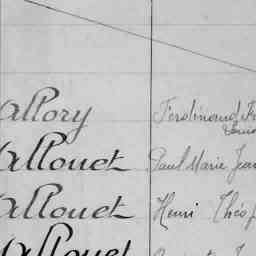 allory Ferdinand Fr
Louis
allouet Paul Marie Jean
allouet Henri Théop
allouet